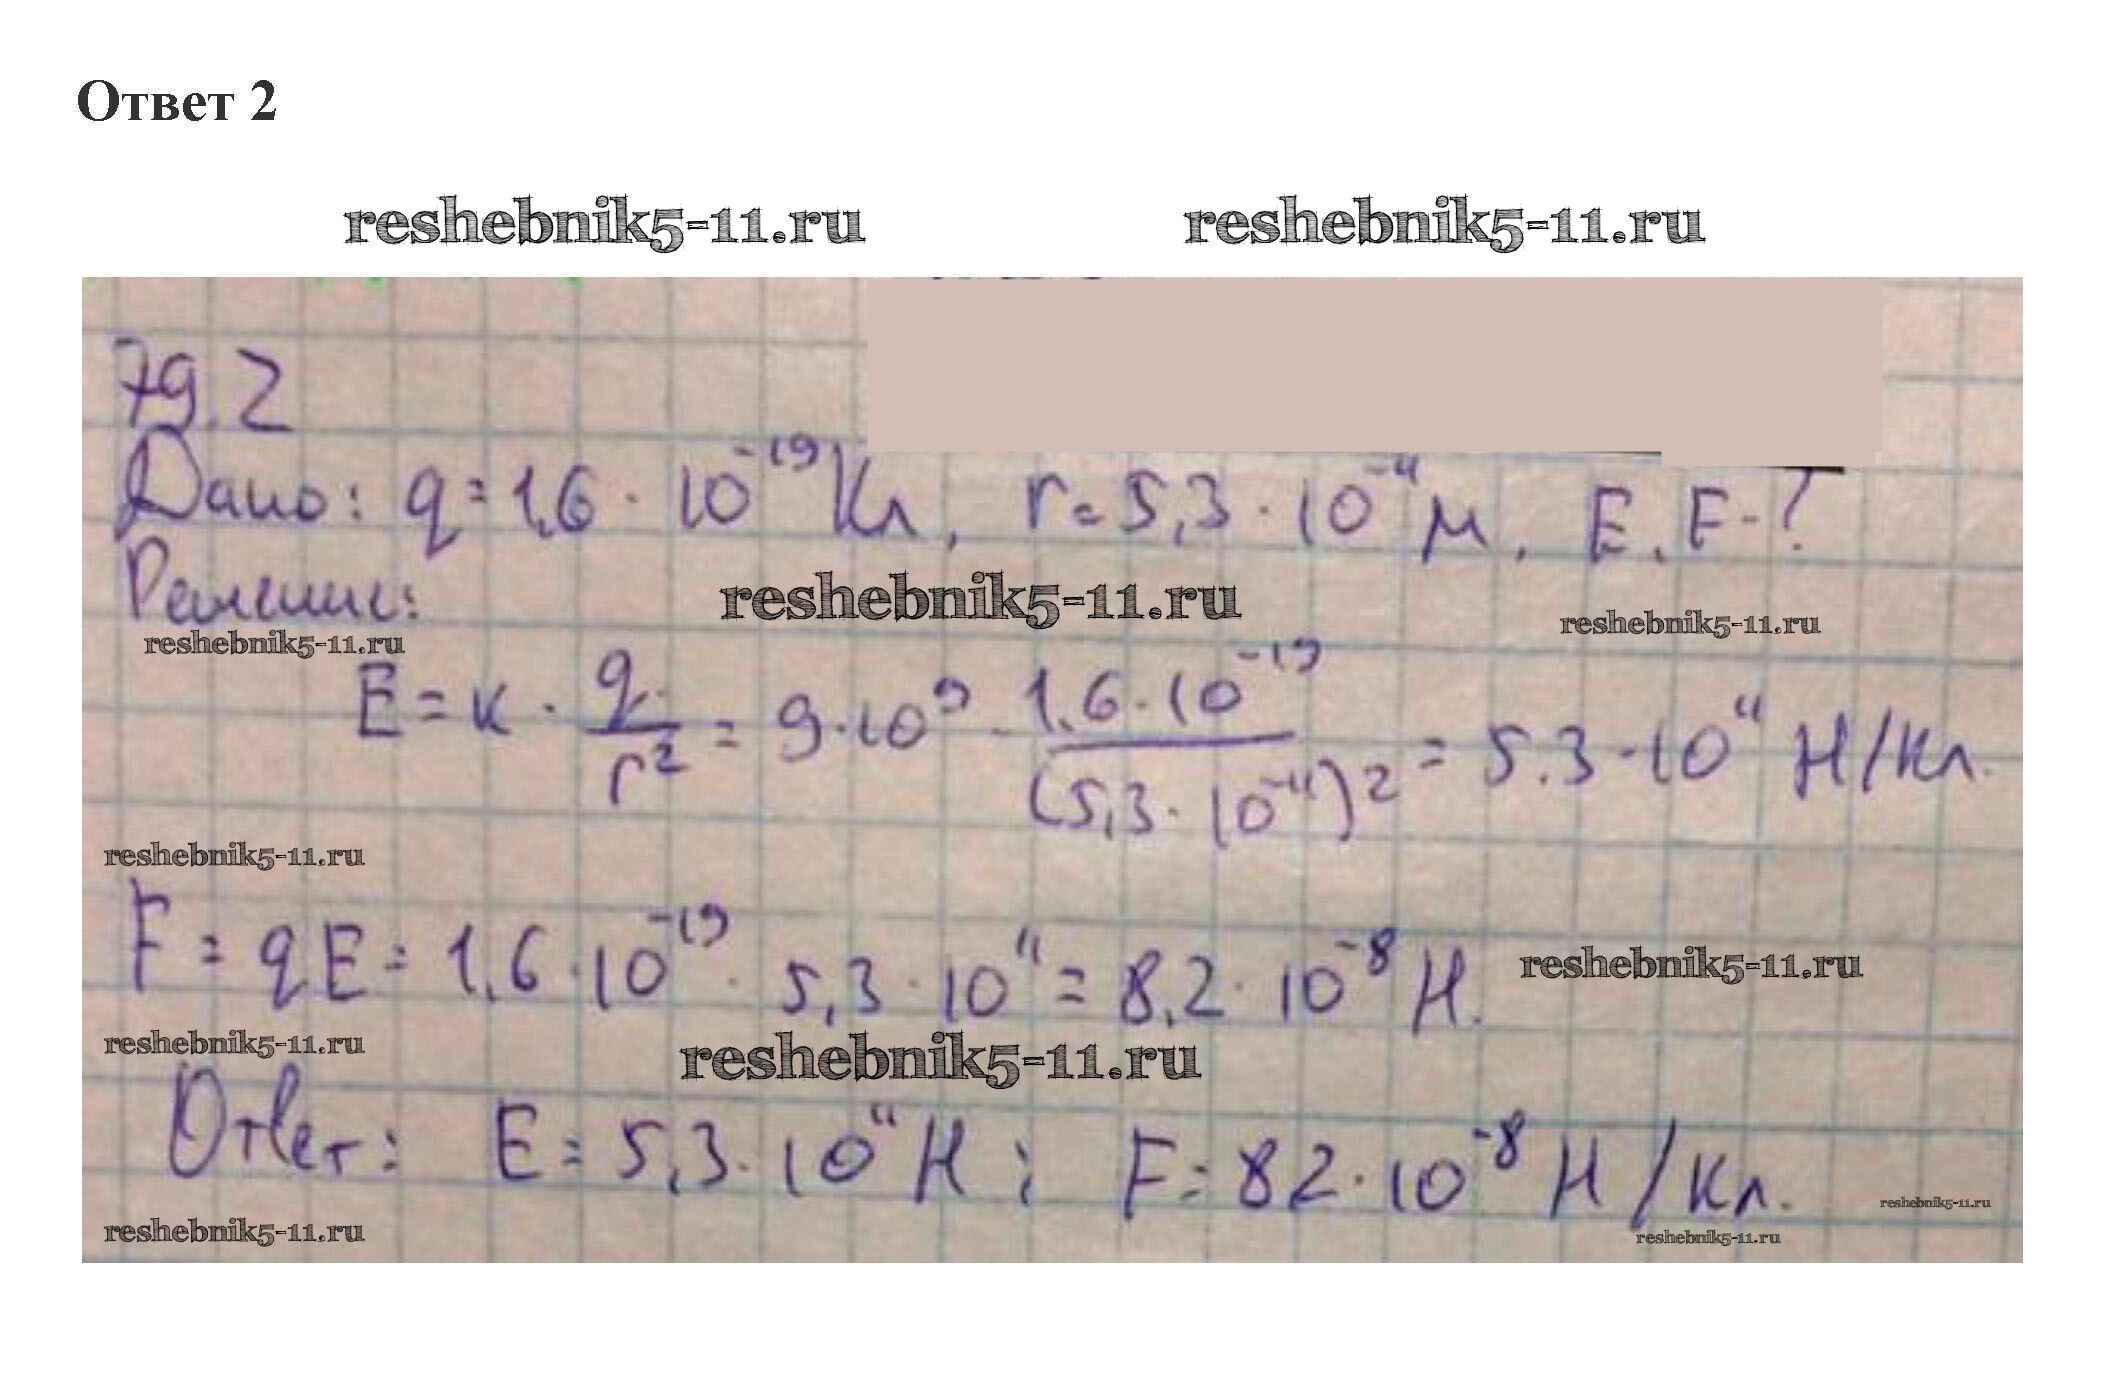 Ответ 2
reshebnik5-11.ru reshebnik5-11.ru
79.2
Дано: q = 1,6 · 10⁻¹⁹ Кл, r = 5,3 · 10⁻¹¹ м, E, F - ?
Решение:
reshebnik5-11.ru reshebnik5-11.ru
reshebnik5-11.ru
E = k · q/r² = 9 · 10⁹ · 1,6 · 10⁻¹⁹/(5,3 · 10⁻¹¹)² = 5.3 · 10¹¹ Н/Кл.
reshebnik5-11.ru
F = qE = 1,6 · 10⁻¹⁹ · 5,3 · 10¹¹ = 8,2 · 10⁻⁸ Н.
reshebnik5-11.ru
reshebnik5-11.ru reshebnik5-11.ru
Ответ: E = 5,3 · 10¹¹ Н; F = 82 · 10⁻⁸ Н/Кл.
reshebnik5-11.ru
reshebnik5-11.ru reshebnik5-11.ru